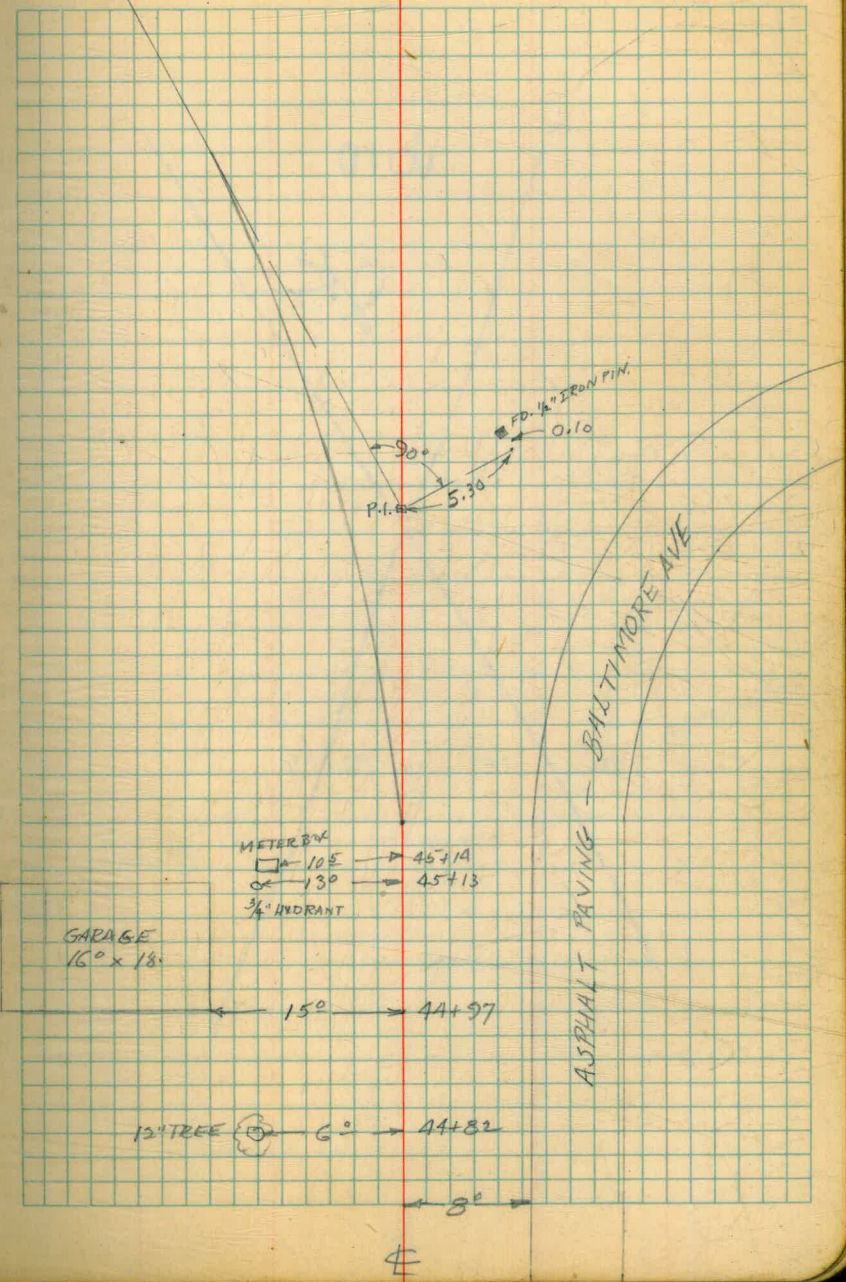 FD. 1/2" IRON PIN.
0.10
90°
5.30
P.I.
ASPHALT PAVING — BALTIMORE AVE
METER BOX
10 5 45+14
13 0 45+13
3/4" HYDRANT
GARAGE
16 0 x 18.
15 0 44+97
12" TREE 6 0 44+82
8 0
℄